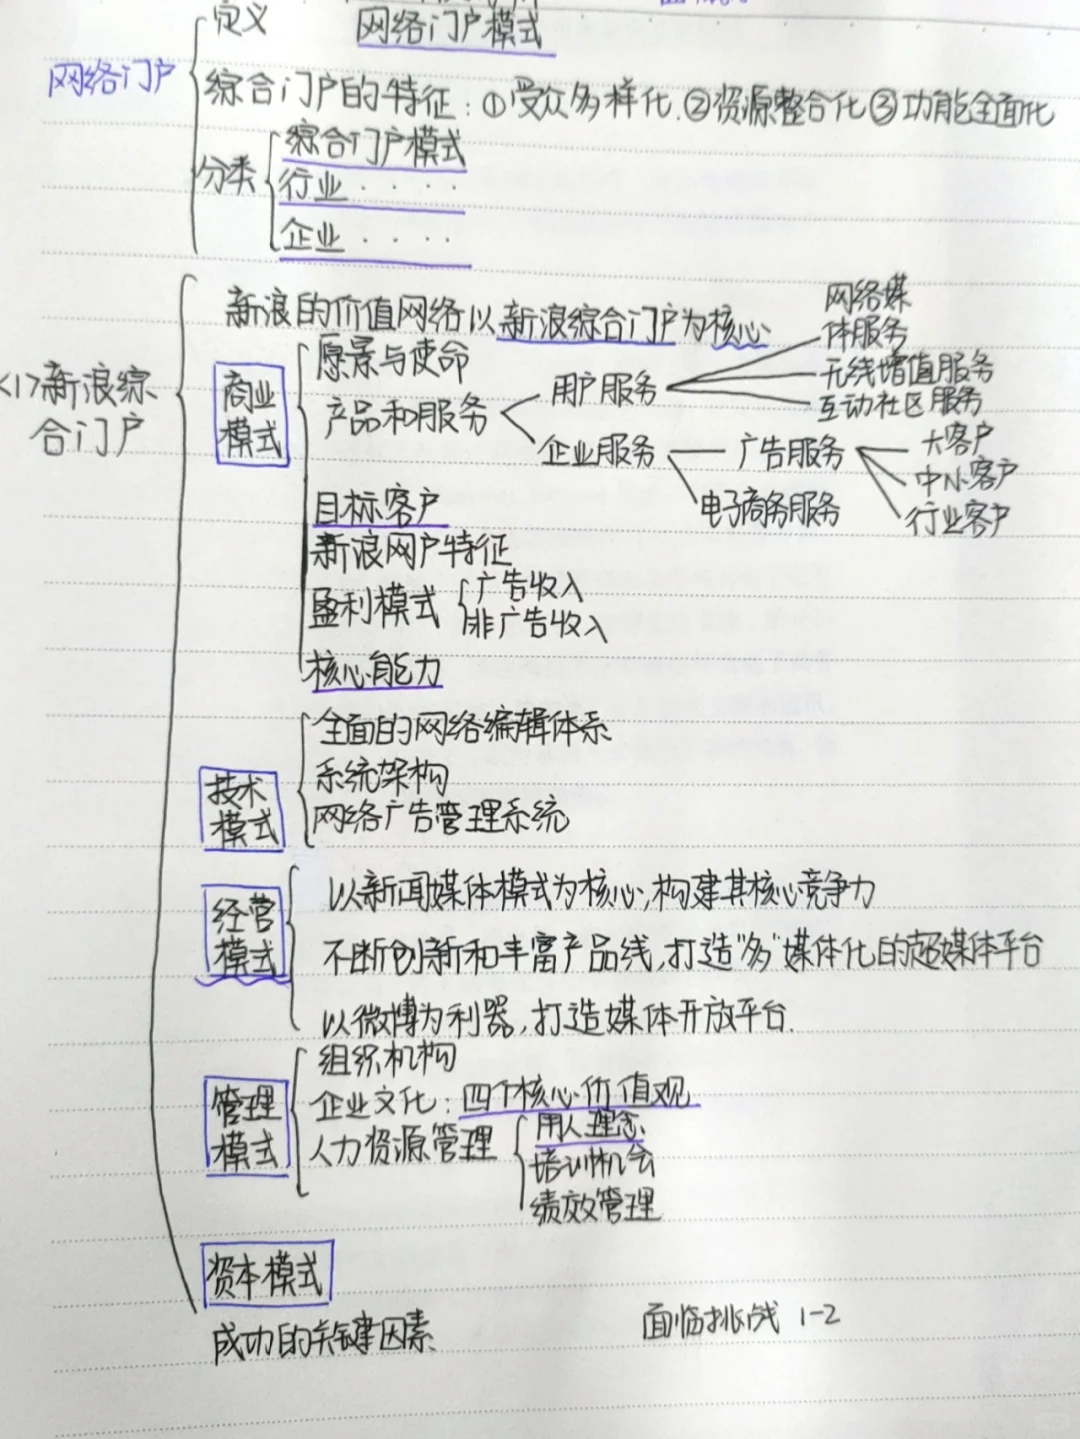 定义 网络门户模式
网络门户
综合门户的特征：①受众多样化.②资源整合化③功能全面化
分类
综合门户模式
行业 ····
企业 ····
<1>新浪综
合门户
新浪的价值网络以新浪综合门户为核心
商业
模式
愿景与使命
产品和服务
用户服务
网络媒
体服务
无线增值服务
互动社区服务
企业服务
广告服务
大客户
中小客户
行业客户
电子商务服务
目标客户
新浪网户特征
盈利模式
广告收入
非广告收入
核心能力
技术
模式
全面的网络编辑体系
系统架构
网络广告管理系统
经营
模式
以新闻媒体模式为核心,构建其核心竞争力
不断创新和丰富产品线,打造"多"媒体化的超媒体平台
以微博为利器,打造媒体开放平台.
管理
模式
组织机构
企业文化:四个核心价值观
人力资源管理
用人理念
培训机会
绩效管理
资本模式
成功的关键因素
面临挑战 1-2